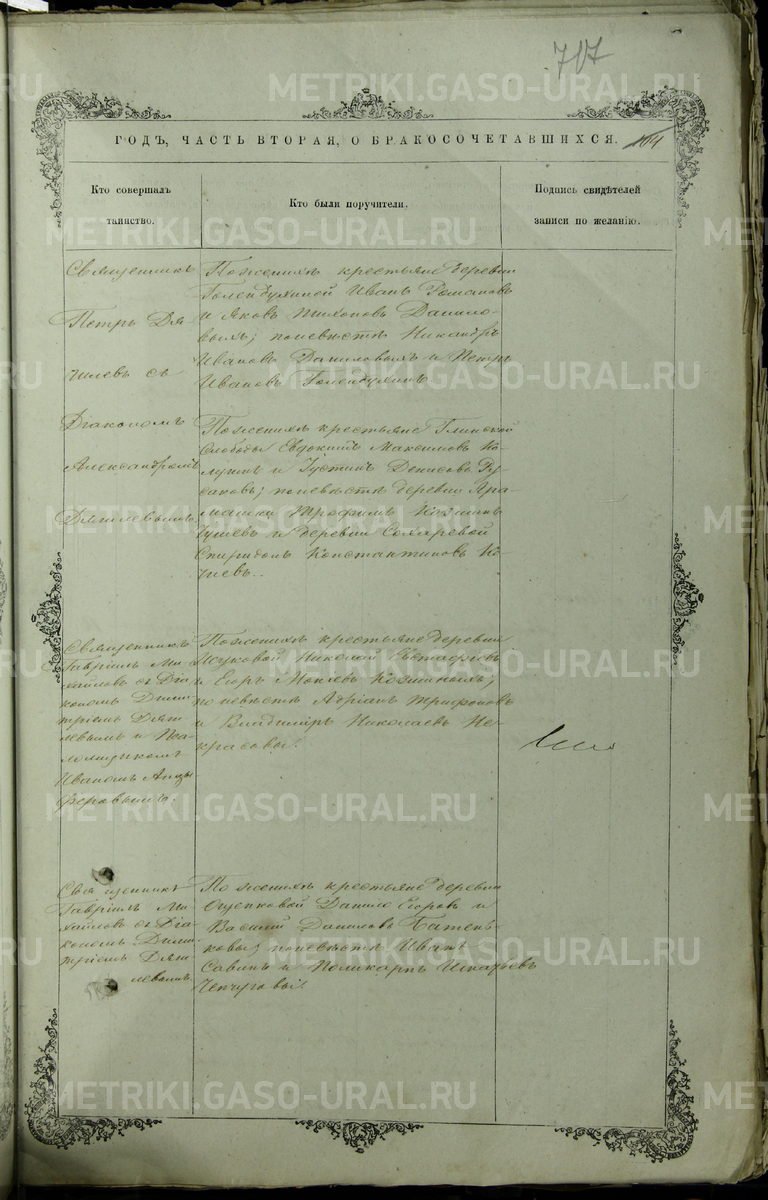 707
ГОДЪ, ЧАСТЬ ВТОРАЯ, О БРАКОСОЧЕТАВШИХСЯ.
Кто совершалъ
таинство.
Кто были поручители.
Подпись свидѣтелей
записи по желанію.
Священникъ
Петръ
съ
Діакономъ
Александромъ
По женихѣ крестьяне деревни
Голендухиной Иванъ Романовъ
и Яковъ Тихоновъ Данило-
выхъ; по невѣстѣ Никандръ
Ивановъ Даниловыхъ и Петръ
Ивановъ Голендухинъ
По женихѣ крестьяне Глинской
Слободы Евдокимъ Максимовъ
и Густинъ Денисовъ Ру-
саковъ; по невѣстѣ деревни Ара-
машки Трофимъ
и деревни
Спиридонъ Константиновъ
Священникъ
Гавріилъ Ми-
хайловъ съ Діа-
кономъ Дими-
тріемъ Дяги-
левымъ и
Иваномъ Анцы-
феровымъ.
По женихѣ крестьяне деревни
Николай Евстафіевъ
и Егоръ Мокѣевъ
по невѣстѣ Адріанъ Трифоновъ
и Владиміръ Николаевъ Не-
красовы.
Священникъ
Гавріилъ Ми-
хайловъ съ Діа-
кономъ Дими-
тріемъ Дяги-
левымъ
По женихѣ крестьяне деревни
Ощепковой Данило Егоровъ и
Василій Даниловъ Батень-
ковы; по невѣстѣ Иванъ
Савинъ и Поликарпъ Игнатьевъ
Чепчуговы.
METRIKI.GASO-URAL.RU